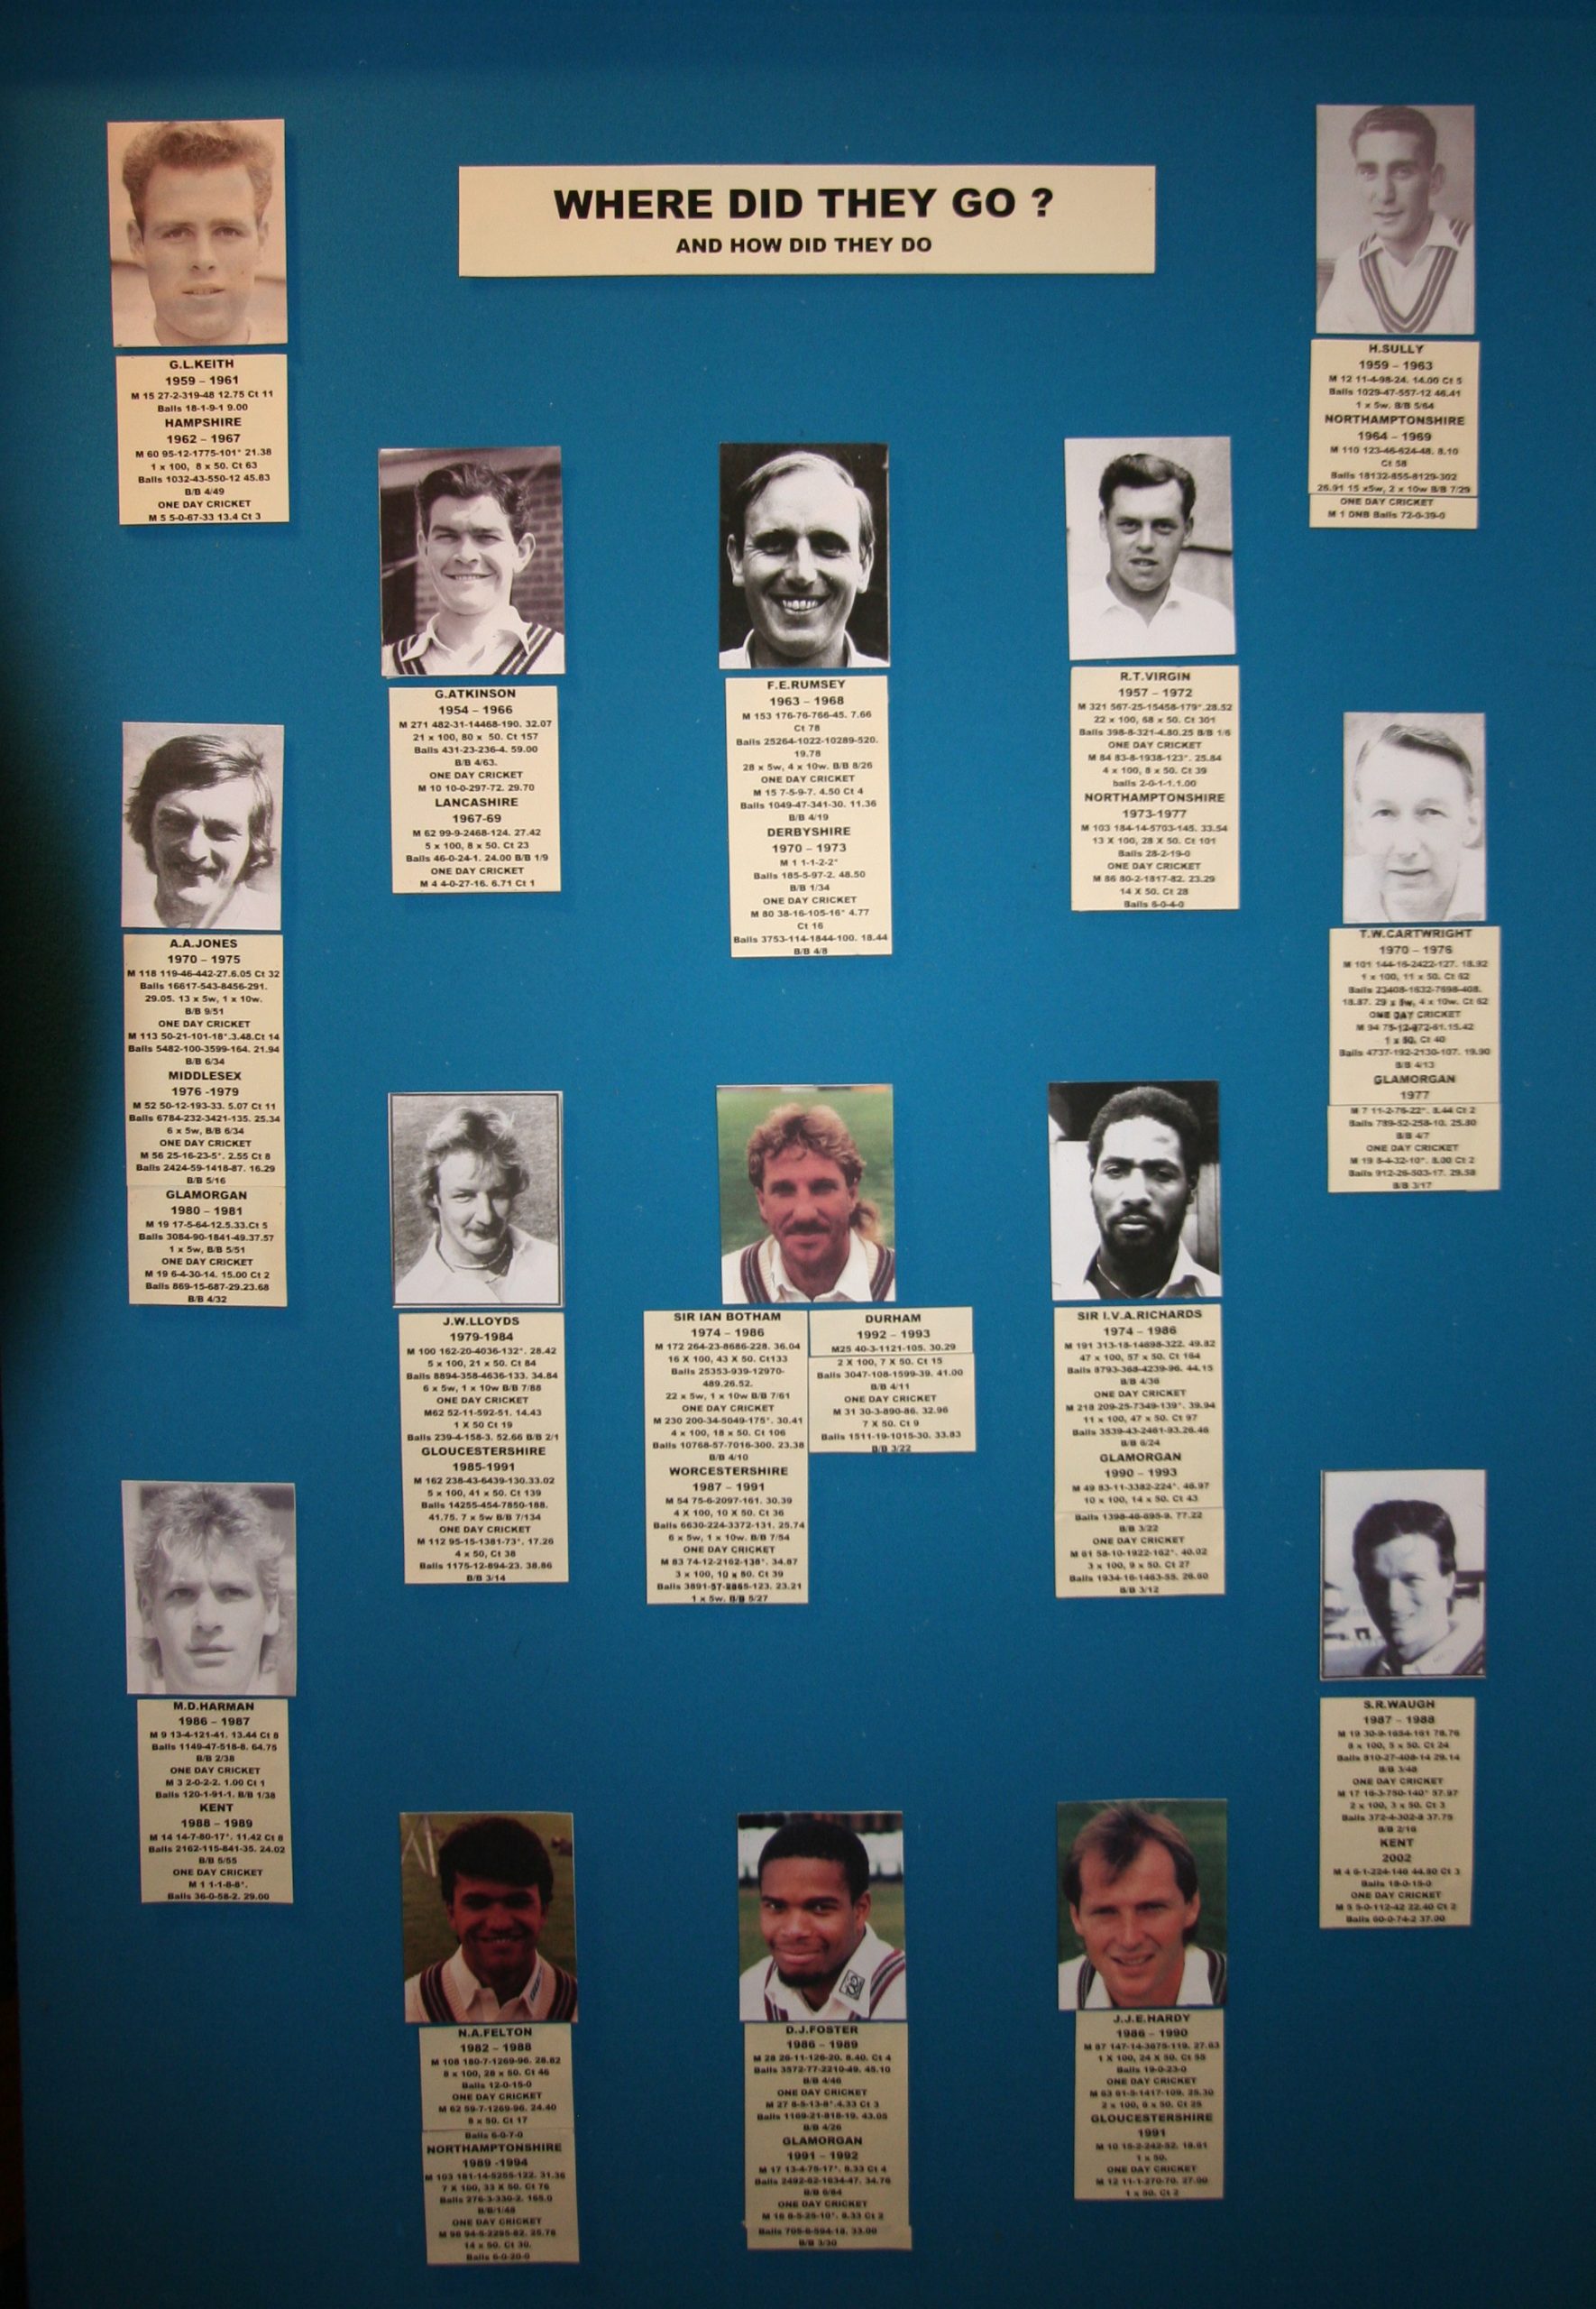 WHERE DID THEY GO ?
AND HOW DID THEY DO
G.L.KEITH
1959 – 1961
M 15 27-2-319-48 12.75 Ct 11
Balls 18-1-9-1 9.00
HAMPSHIRE
1962 – 1967
M 60 95-12-1775-101* 21.38
1 x 100, 8 x 50. Ct 63
Balls 1032-43-550-12 45.83
B/B 4/49
ONE DAY CRICKET
M 5 5-0-67-33 13.4 Ct 3
H.SULLY
1959 – 1963
M 12 11-4-98-24. 14.00 Ct 5
Balls 1029-47-557-12 46.41
1 x 5w. B/B 5/64
NORTHAMPTONSHIRE
1964 – 1969
M 110 123-46-624-48. 8.10
Ct 58
Balls 18132-855-8129-302
26.91 15 x5w, 2 x 10w B/B 7/29
ONE DAY CRICKET
M 1 DNB Balls 72-0-39-0
G.ATKINSON
1954 – 1966
M 271 482-31-14468-190. 32.07
21 x 100, 80 x 50. Ct 157
Balls 431-23-236-4. 59.00
B/B 4/63.
ONE DAY CRICKET
M 10 10-0-297-72. 29.70
LANCASHIRE
1967-69
M 62 99-9-2468-124. 27.42
5 x 100, 8 x 50. Ct 23
Balls 46-0-24-1. 24.00 B/B 1/9
ONE DAY CRICKET
M 4 4-0-27-16. 6.71 Ct 1
F.E.RUMSEY
1963 – 1968
M 153 176-76-766-45. 7.66
Ct 78
Balls 25264-1022-10289-520.
19.78
28 x 5w, 4 x 10w. B/B 8/26
ONE DAY CRICKET
M 15 7-5-9-7. 4.50 Ct 4
Balls 1049-47-341-30. 11.36
B/B 4/19
DERBYSHIRE
1970 – 1973
M 1 1-1-2-2*
Balls 185-5-97-2. 48.50
B/B 1/34
ONE DAY CRICKET
M 80 38-16-105-16* 4.77
Ct 16
Balls 3753-114-1844-100. 18.44
B/B 4/8
R.T.VIRGIN
1957 – 1972
M 321 567-25-15458-179*.28.52
22 x 100, 68 x 50. Ct 301
Balls 398-8-321-4.80.25 B/B 1/6
ONE DAY CRICKET
M 84 83-8-1938-123*. 25.84
4 x 100, 8 x 50. Ct 39
balls 2-0-1-1.1.00
NORTHAMPTONSHIRE
1973-1977
M 103 184-14-5703-145. 33.54
13 X 100, 28 X 50. Ct 101
Balls 28-2-19-0
ONE DAY CRICKET
M 86 80-2-1817-82. 23.29
14 X 50. Ct 28
Balls 6-0-4-0
A.A.JONES
1970 – 1975
M 118 119-46-442-27.6.05 Ct 32
Balls 16617-543-8456-291.
29.05. 13 x 5w, 1 x 10w.
B/B 9/51
ONE DAY CRICKET
M 113 50-21-101-18*.3.48.Ct 14
Balls 5482-100-3599-164. 21.94
B/B 6/34
MIDDLESEX
1976 -1979
M 52 50-12-193-33. 5.07 Ct 11
Balls 6784-232-3421-135. 25.34
6 x 5w, B/B 6/34
ONE DAY CRICKET
M 56 25-16-23-5*. 2.55 Ct 8
Balls 2424-59-1418-87. 16.29
B/B 5/16
GLAMORGAN
1980 – 1981
M 19 17-5-64-12.5.33.Ct 5
Balls 3084-90-1841-49.37.57
1 x 5w, B/B 5/51
ONE DAY CRICKET
M 19 6-4-30-14. 15.00 Ct 2
Balls 869-15-687-29.23.68
B/B 4/32
T.W.CARTWRIGHT
1970 – 1976
M 101 144-16-2422-127. 18.92
1 x 100, 11 x 50. Ct 62
Balls 23408-1632-7698-408.
18.87. 29 x 5w, 4 x 10w. Ct 62
ONE DAY CRICKET
M 94 75-12-972-61.15.42
1 x 50, Ct 40
Balls 4737-192-2130-107. 19.90
B/B 4/13
GLAMORGAN
1977
M 7 11-2-76-22*. 8.44 Ct 2
Balls 789-52-258-10. 25.80
B/B 4/7
ONE DAY CRICKET
M 19 8-4-32-10*. 8.00 Ct 2
Balls 912-26-503-17. 29.58
B/B 3/17
J.W.LLOYDS
1979-1984
M 100 162-20-4036-132*. 28.42
5 x 100, 21 x 50. Ct 84
Balls 8894-358-4636-133. 34.84
6 x 5w, 1 x 10w B/B 7/88
ONE DAY CRICKET
M62 52-11-592-51. 14.43
1 X 50 Ct 19
Balls 239-4-158-3. 52.66 B/B 2/1
GLOUCESTERSHIRE
1985-1991
M 162 238-43-6439-130.33.02
5 x 100, 41 x 50. Ct 139
Balls 14255-454-7850-188.
41.75. 7 x 5w B/B 7/134
ONE DAY CRICKET
M 112 95-15-1381-73*. 17.26
4 x 50, Ct 38
Balls 1175-12-894-23. 38.86
B/B 3/14
SIR IAN BOTHAM
1974 – 1986
M 172 264-23-8686-228. 36.04
16 X 100, 43 X 50. Ct133
Balls 25353-939-12970-
489.26.52.
22 x 5w, 1 x 10w B/B 7/61
ONE DAY CRICKET
M 230 200-34-5049-175*. 30.41
4 x 100, 18 x 50. Ct 106
Balls 10768-57-7016-300. 23.38
B/B 4/10
WORCESTERSHIRE
1987 – 1991
M 54 75-6-2097-161. 30.39
4 X 100, 10 X 50. Ct 36
Balls 6630-224-3372-131. 25.74
6 x 5w, 1 x 10w. B/B 7/54
ONE DAY CRICKET
M 83 74-12-2162-138*. 34.87
3 x 100, 10 x 50. Ct 39
Balls 3891-57-2855-123. 23.21
1 x 5w. B/B 5/27
DURHAM
1992 – 1993
M25 40-3-1121-105. 30.29
2 X 100, 7 X 50. Ct 15
Balls 3047-108-1599-39. 41.00
B/B 4/11
ONE DAY CRICKET
M 31 30-3-890-86. 32.96
7 X 50. Ct 9
Balls 1511-19-1015-30. 33.83
B/B 3/22
SIR I.V.A.RICHARDS
1974 – 1986
M 191 313-18-14698-322. 49.82
47 x 100, 57 x 50. Ct 164
Balls 8793-368-4239-96. 44.15
B/B 4/36
ONE DAY CRICKET
M 218 209-25-7349-139*. 39.94
11 x 100, 47 x 50. Ct 97
Balls 3539-43-2461-93.26.46
B/B 6/24
GLAMORGAN
1990 – 1993
M 49 83-11-3382-224*. 46.97
10 x 100, 14 x 50. Ct 43
77.22
B/B 3/22
ONE DAY CRICKET
M 61 58-10-1922-162*. 40.02
3 x 100, 9 x 50. Ct 27
Balls 1934-16-1463-55. 26.60
B/B 3/12
M.D.HARMAN
1986 – 1987
M 9 13-4-121-41. 13.44 Ct 8
Balls 1149-47-518-8. 64.75
B/B 2/38
ONE DAY CRICKET
M 3 2-0-2-2. 1.00 Ct 1
Balls 120-1-91-1. B/B 1/38
KENT
1988 – 1989
M 14 14-7-80-17*. 11.42 Ct 8
Balls 2162-115-841-35. 24.02
B/B 5/55
ONE DAY CRICKET
M 1 1-1-8-8*.
Balls 36-0-58-2. 29.00
S.R.WAUGH
1987 – 1988
M 19 30-9-1654-161 78.76
8 x 100, 5 x 50. Ct 24
Balls 810-27-408-14 29.14
B/B 3/48
ONE DAY CRICKET
M 17 16-3-750-140* 57.97
2 x 100, 3 x 50. Ct 3
Balls 372-4-302-8 37.75
B/B 2/16
KENT
2002
M 4 6-1-224-146 44.80 Ct 3
Balls 18-0-15-0
ONE DAY CRICKET
M 5 5-0-112-42 22.40 Ct 2
Balls 60-0-74-2 37.00
N.A.FELTON
1982 – 1988
M 108 180-7-1269-96. 28.82
8 x 100, 28 x 50. Ct 46
Balls 12-0-15-0
ONE DAY CRICKET
M 62 59-7-1269-96. 24.40
8 x 50. Ct 17
Balls 6-0-7-0
NORTHAMPTONSHIRE
1989 -1994
M 103 181-14-5255-122. 31.36
7 X 100, 33 X 50. Ct 76
Balls 276-3-330-2. 165.0
B/B/1/48
ONE DAY CRICKET
M 98 94-5-2295-82. 25.78
14 x 50. Ct 30.
Balls 6-0-20-0
D.J.FOSTER
1986 – 1989
M 28 26-11-126-20. 8.40. Ct 4
Balls 3572-77-2210-49. 45.10
B/B 4/46
ONE DAY CRICKET
M 27 8-5-13-8*.4.33 Ct 3
Balls 1169-21-818-19. 43.05
B/B 4/26
GLAMORGAN
1991 – 1992
M 17 13-4-75-17*. 8.33 Ct 4
Balls 2492-62-1634-47. 34.76
B/B 6/84
ONE DAY CRICKET
M 16 8-5-25-10*. 8.33 Ct 2
Balls 705-6-594-18. 33.00
B/B 3/30
J.J.E.HARDY
1986 – 1990
M 87 147-14-3675-119. 27.63
1 X 100, 24 X 50. Ct 55
Balls 19-0-23-0
ONE DAY CRICKET
M 63 61-5-1417-109. 25.30
2 x 100, 6 x 50. Ct 25
GLOUCESTERSHIRE
1991
M 10 15-2-242-52. 18.61
1 x 50.
ONE DAY CRICKET
M 12 11-1-270-70. 27.00
1 x 50. Ct 2